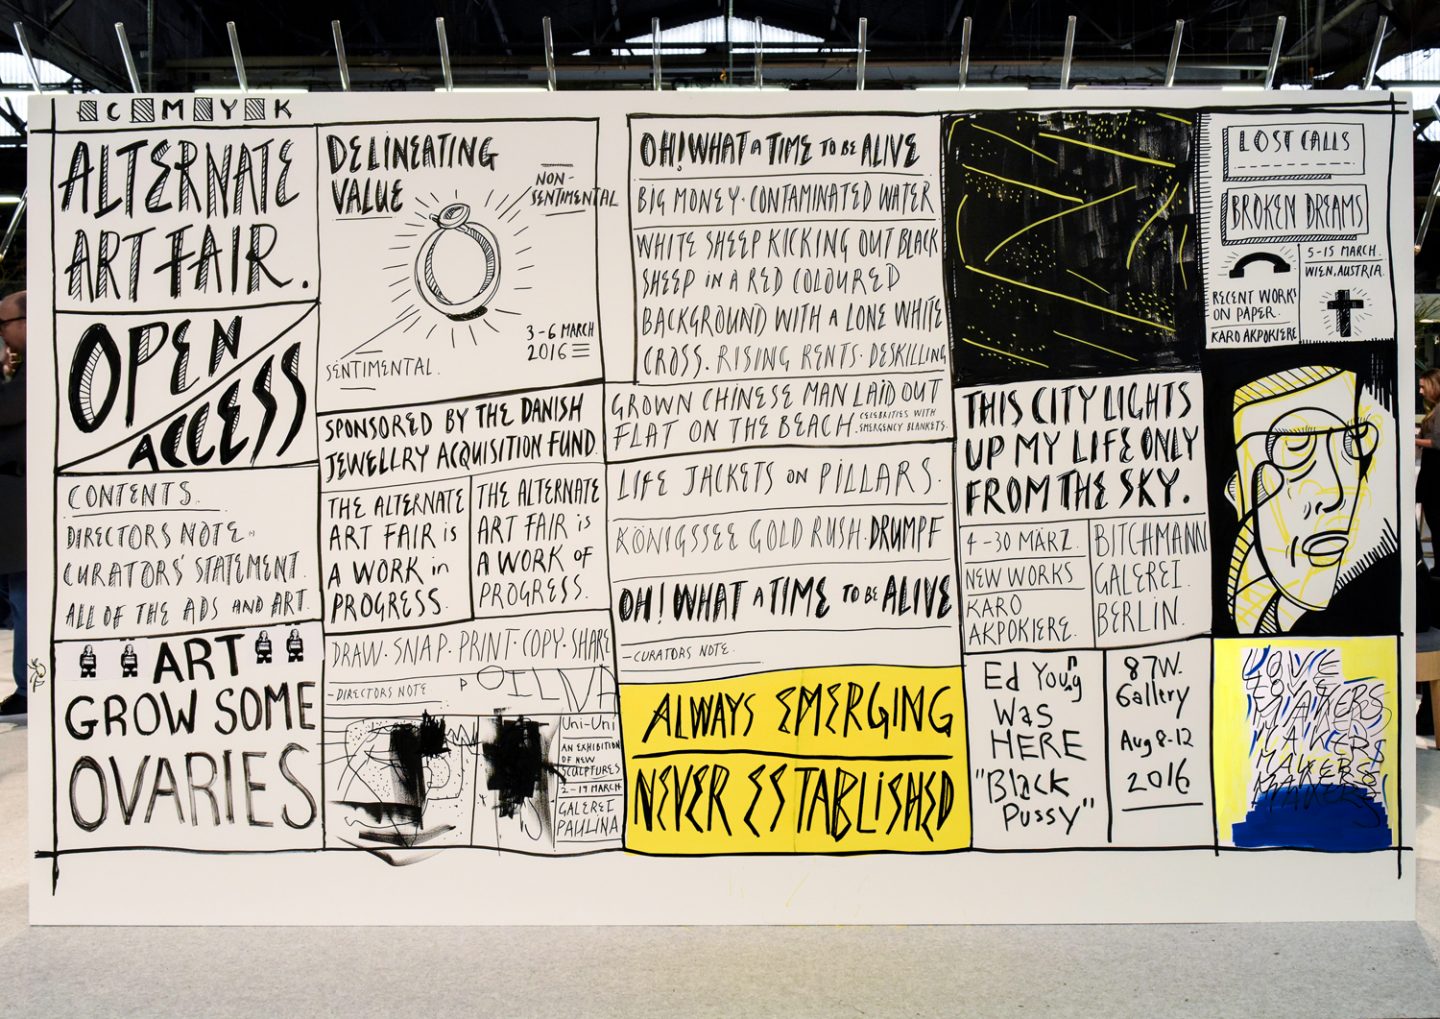 C M Y K
ALTERNATE
ART FAIR.
OPEN
ACCESS
CONTENTS.
DIRECTORS NOTE.
CURATORS' STATEMENT.
ALL OF THE ADS AND ART.
ART
GROW SOME
OVARIES
DELINEATING
VALUE
NON-
SENTIMENTAL
3-6 MARCH
2016
SENTIMENTAL.
SPONSORED BY THE DANISH
JEWELLRY ACQUISITION FUND.
THE ALTERNATE
ART FAIR is
A WORK in
PROGRESS.
THE ALTERNATE
ART FAIR is
A WORK OF
PROGRESS.
DRAW · SNAP · PRINT · COPY · SHARE
-DIRECTORS NOTE
Uni-Uni
AN EXHIBITION
OF NEW
SCULPTURES
2-19 MARCH
GALEREI
PAULINA
OH! WHAT A TIME TO BE ALIVE
BIG MONEY · CONTAMINATED WATER
WHITE SHEEP KICKING OUT BLACK
SHEEP in A RED COLOURED
BACKGROUND WITH A LONE WHITE
CROSS. RISING RENTS · DESKILLING
GROWN CHINESE MAN LAID OUT
FLAT ON THE BEACH. CELEBRITIES WITH
EMERGENCY BLANKETS.
LIFE JACKETS ON PILLARS.
KÖNIGSSEE GOLD RUSH. DRUMPF
OH! WHAT A TIME TO BE ALIVE
-CURATORS NOTE.
ALWAYS EMERGING
NEVER ESTABLISHED
THIS CITY LIGHTS
UP MY LIFE ONLY
FROM THE SKY.
4-30 MÄRZ.
NEW WORKS
KARO
AKPOKIERE.
BITCHMANN
GALEREI.
BERLIN.
Ed Young
Was
HERE
"Black
Pussy"
87W.
Gallery
Aug 8-12
2016
LOST CALLS
BROKEN DREAMS
5-15 MARCH.
WIEN, AUSTRIA.
RECENT WORKS
ON PAPER.
KARO AKPOKIERE
LOVIE
MAKERS
MAKERS
MAKERS
MAKERS